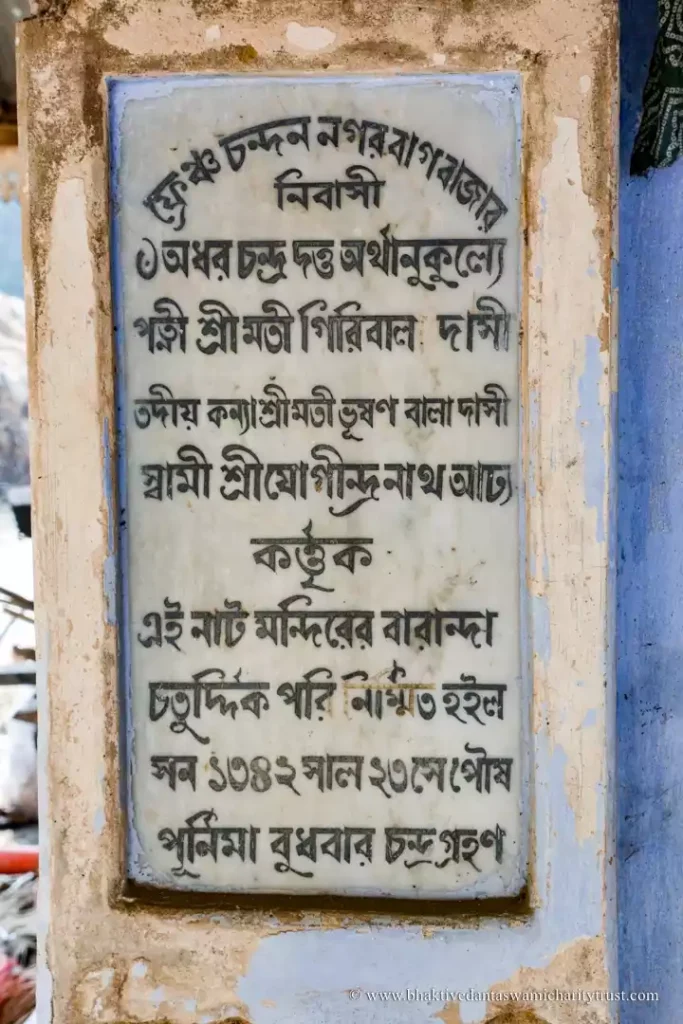 ফ্রেঞ্চ চন্দন নগর বাগবাজার
নিবাসী
৺অধর চন্দ্র দত্ত অর্থানুকুল্যে
পত্নী শ্রীমতী গিরিবালা দাসী
তদীয় কন্যা শ্রীমতী ভূষণ বালা দাসী
স্বামী শ্রীযোগীন্দ্র নাথ আঢ্য
কর্ত্তৃক
এই নাট মন্দিরের বারান্দা
চতুর্দ্দিক পরি নির্ম্মিত হইল
সন ১৩৪২ সাল ২৩সে পৌষ
পূর্নিমা বুধবার চন্দ্রগ্রহণ
© www.bhaktivedantaswamicharitytrust.com